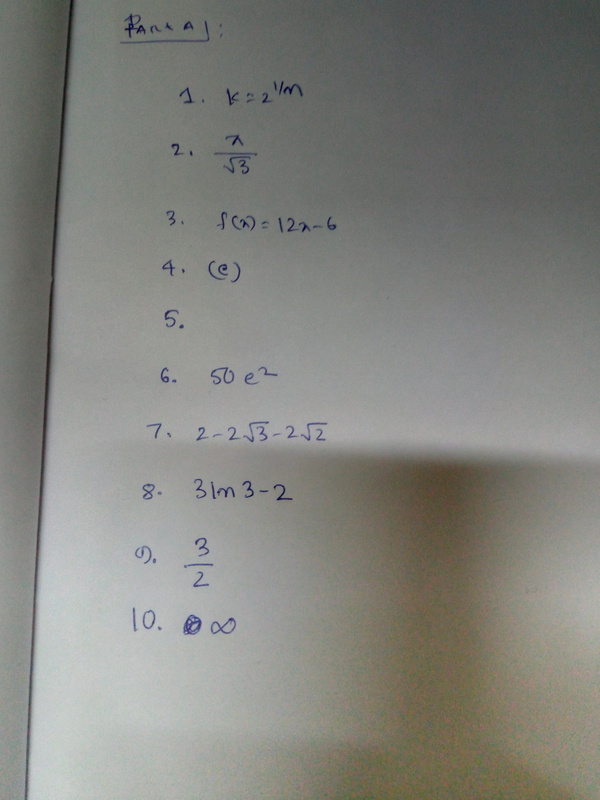 Part A:
1. k = 2^1/n
2. x/√3
3. f(x) = 12x-6
4. (e)
5.
6. 50 e²
7. 2-2√3-2√2
8. 3 ln 3 - 2
9. 3/2
10. ∞